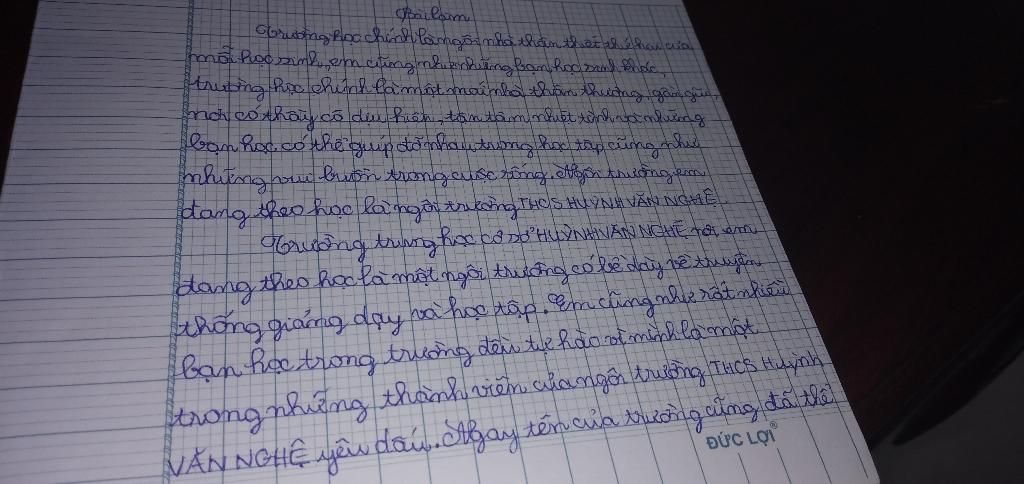 Bài làm
Trường học chính là ngôi nhà thân thiết thứ hai của
mỗi học sinh, em cũng như những bạn học sinh khác,
trường học chính là một mái nhà thân thương, gần gũi,
nơi có thầy cô dịu hiền, tận tâm, nhiệt tình và những
bạn học có thể giúp đỡ nhau trong học tập cũng như
những vui buồn trong cuộc sống. Ngôi trường em
đang theo học là ngôi trường THCS HUỲNH VĂN NGHỆ.
Trường trung học cơ sở HUỲNH VĂN NGHỆ nơi em
đang theo học là một ngôi trường có bề dày về truyền
thống giảng dạy và học tập. Em cũng như rất nhiều
bạn học trong trường đều tự hào vì mình là một
trong những thành viên của ngôi trường THCS Huỳnh
VĂN NGHỆ yêu dấu. Ngay tên của trường cũng đã thể
ĐỨC LỢI